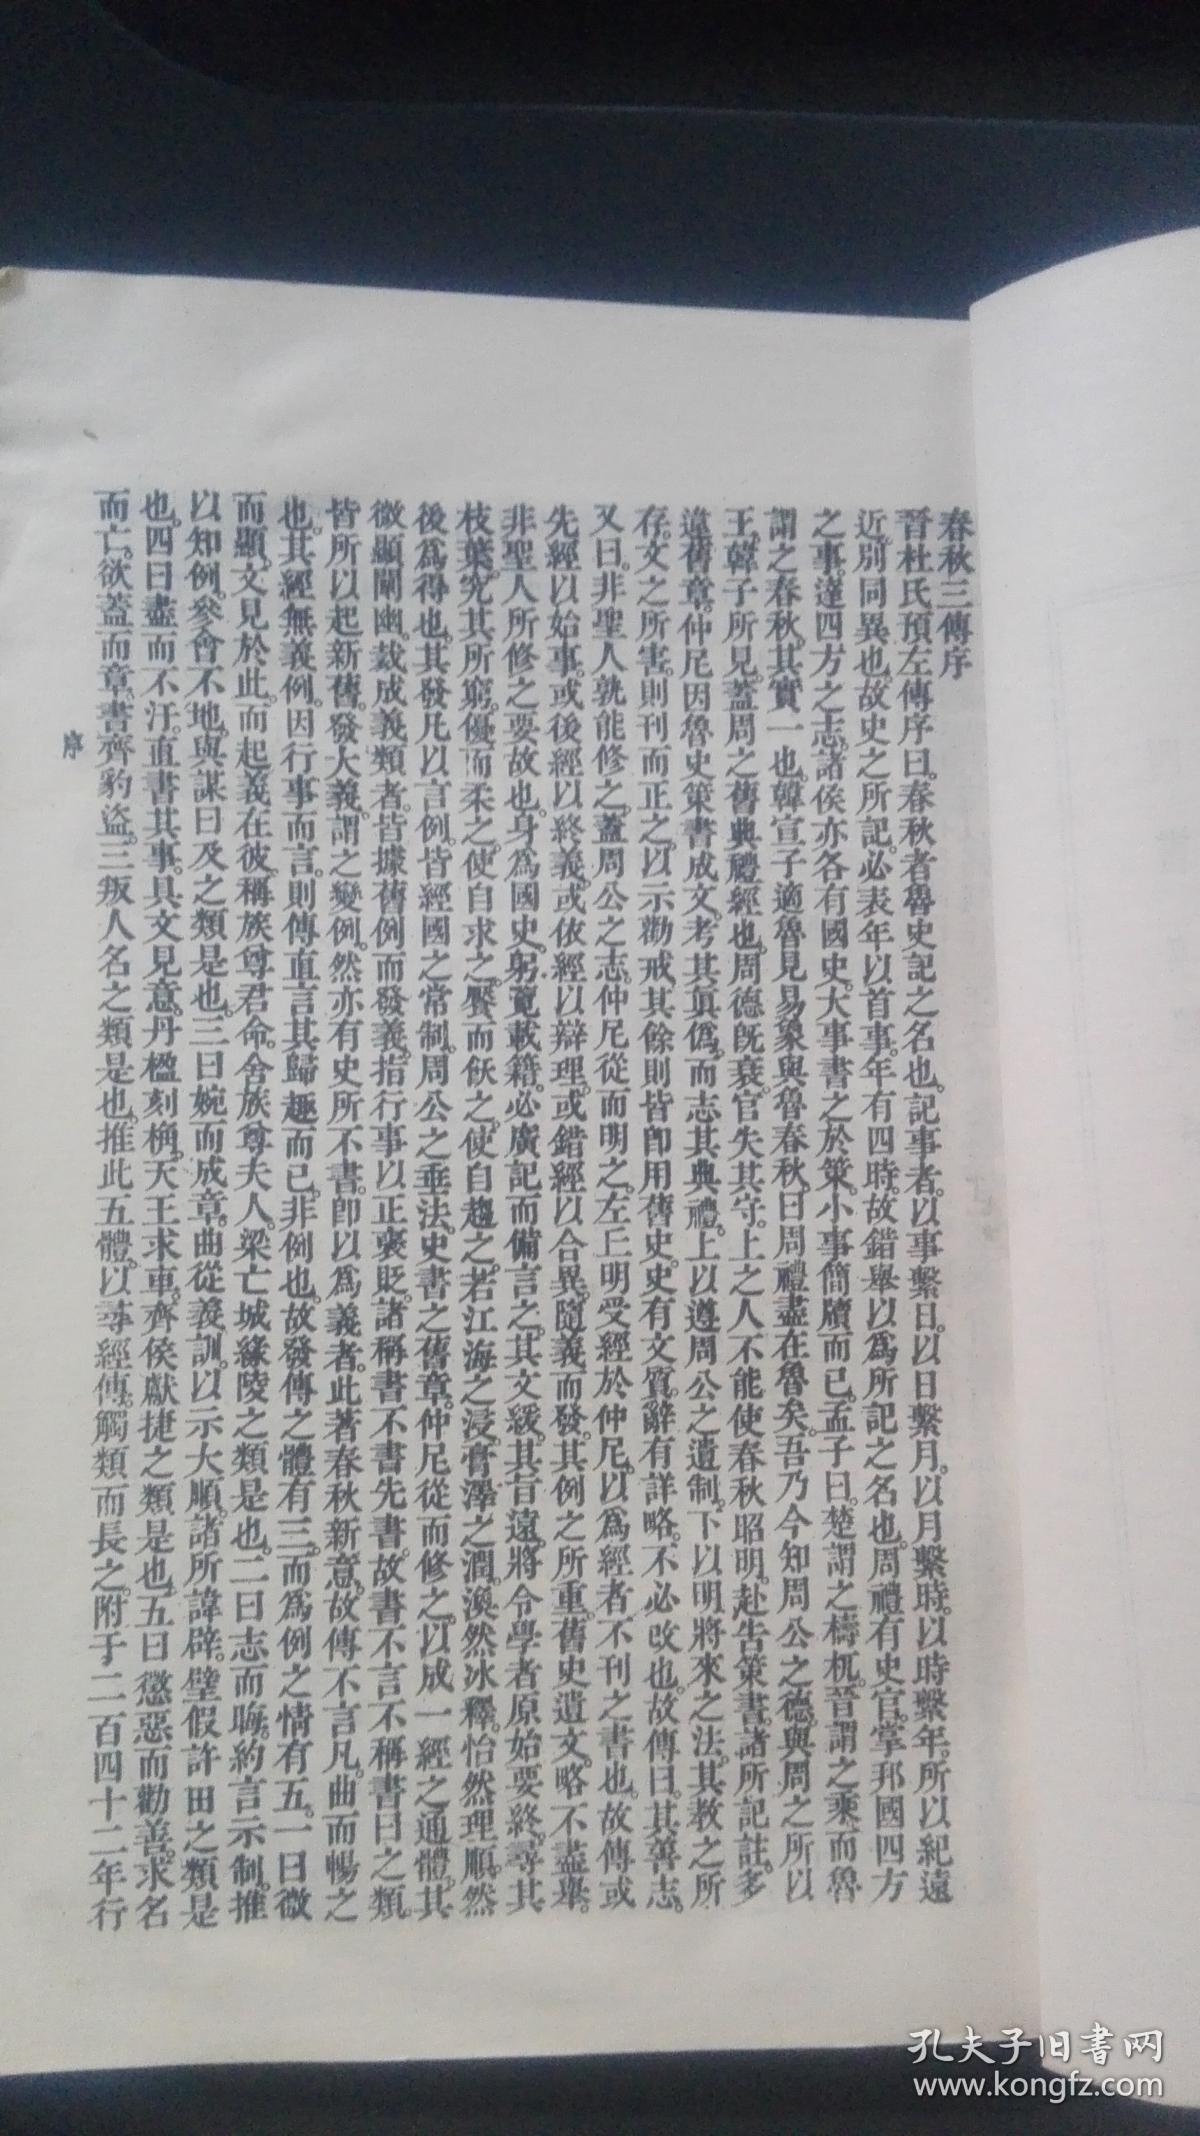 春秋三傳序
晉杜氏預左傳序曰。春秋者魯史記之名也。記事者。以事繫日。以日繫月。以月繫時。以時繫年。所以紀遠
近。別同異也。故史之所記。必表年以首事。年有四時。故錯舉以爲所記之名也。周禮有史官。掌邦國四方
之事。達四方之志。諸侯亦各有國史。大事書之於策。小事簡牘而已。孟子曰。楚謂之檮杌。晉謂之乘。而魯
謂之春秋。其實一也。韓宣子適魯見易象與魯春秋。曰周禮盡在魯矣。吾乃今知周公之德。與周之所以
王。韓子所見。蓋周之舊典禮經也。周德既衰。官失其守。上之人不能使春秋昭明。赴告策書。諸所記註。多
違舊章。仲尼因魯史策書成文。考其真僞。而志其典禮。上以遵周公之遺制。下以明將來之法。其教之所
存。文之所害。則刊而正之。以示勸戒。其餘則皆即用舊史。史有文質。辭有詳略。不必改也。故傳曰。其善志。
又曰。非聖人孰能修之。蓋周公之志。仲尼從而明之。左丘明受經於仲尼。以爲經者不刊之書也。故傳或
先經以始事。或後經以終義。或依經以辯理。或錯經以合異。隨義而發。其例之所重。舊史遺文。略不盡舉。
非聖人所修之要故也。身爲國史。躬覽載籍。必廣記而備言之。其文緩。其旨遠。將令學者原始要終。尋其
枝葉。究其所窮。優而柔之。使自求之。饜而飫之。使自趨之。若江海之浸。膏澤之潤。渙然冰釋。怡然理順。然
後爲得也。其發凡以言例。皆經國之常制。周公之垂法。史書之舊章。仲尼從而修之。以成一經之通體。其
微顯闡幽。裁成義類者。皆據舊例而發義。指行事以正褒貶。諸稱書不書先書。故書不言不稱書曰之類。
皆所以起新舊。發大義。謂之變例。然亦有史所不書。即以爲義者。此著春秋新意。故傳不言凡。曲而暢之
也。其經無義例。因行事而言。則傳直言其歸趣而已。非例也。故發傳之體有三。而爲例之情有五。一曰微
而顯。文見於此。而起義在彼。稱族尊君命。舍族尊夫人。梁亡城緣陵之類是也。二曰志而晦。約言示制。推
以知例。參會不地。與謀曰及之類是也。三曰婉而成章。曲從義訓。以示大順。諸所諱辟。璧假許田之類是
也。四曰盡而不汙。直書其事。具文見意。丹楹刻桷。天王求車。齊侯獻捷之類是也。五曰懲惡而勸善。求名
而亡。欲蓋而章。書齊豹盜。三叛人名之類是也。推此五體。以尋經傳。觸類而長之。附于二百四十二年行
序
孔夫子旧书网
www.kongfz.com